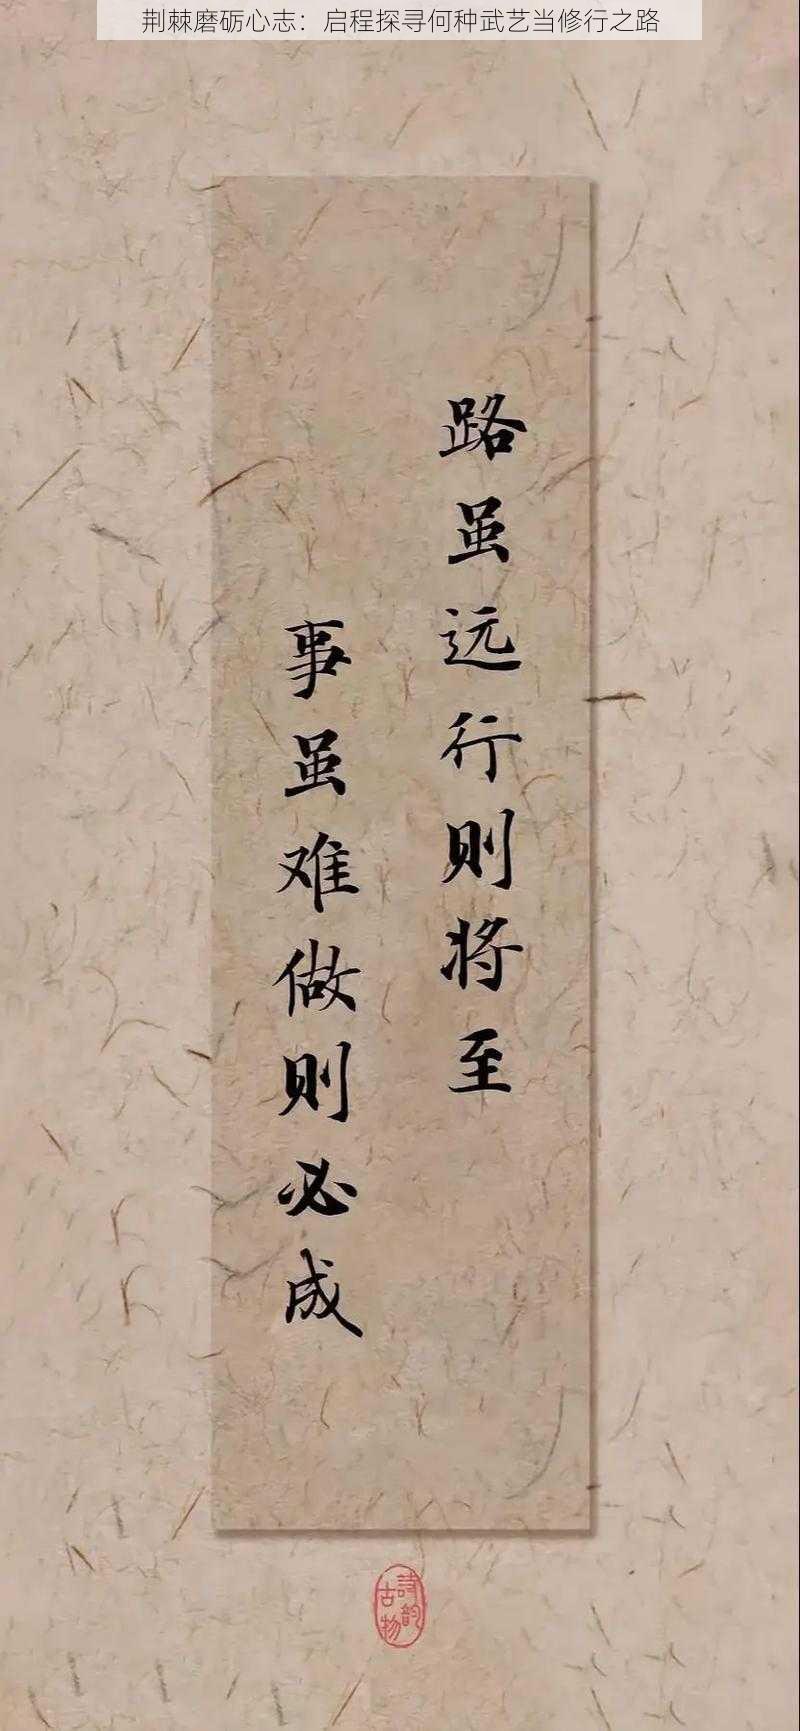 荆棘磨砺心志：启程探寻何种武艺当修行之路
路虽远行则将至
事虽难做则必成
詩韵
古物